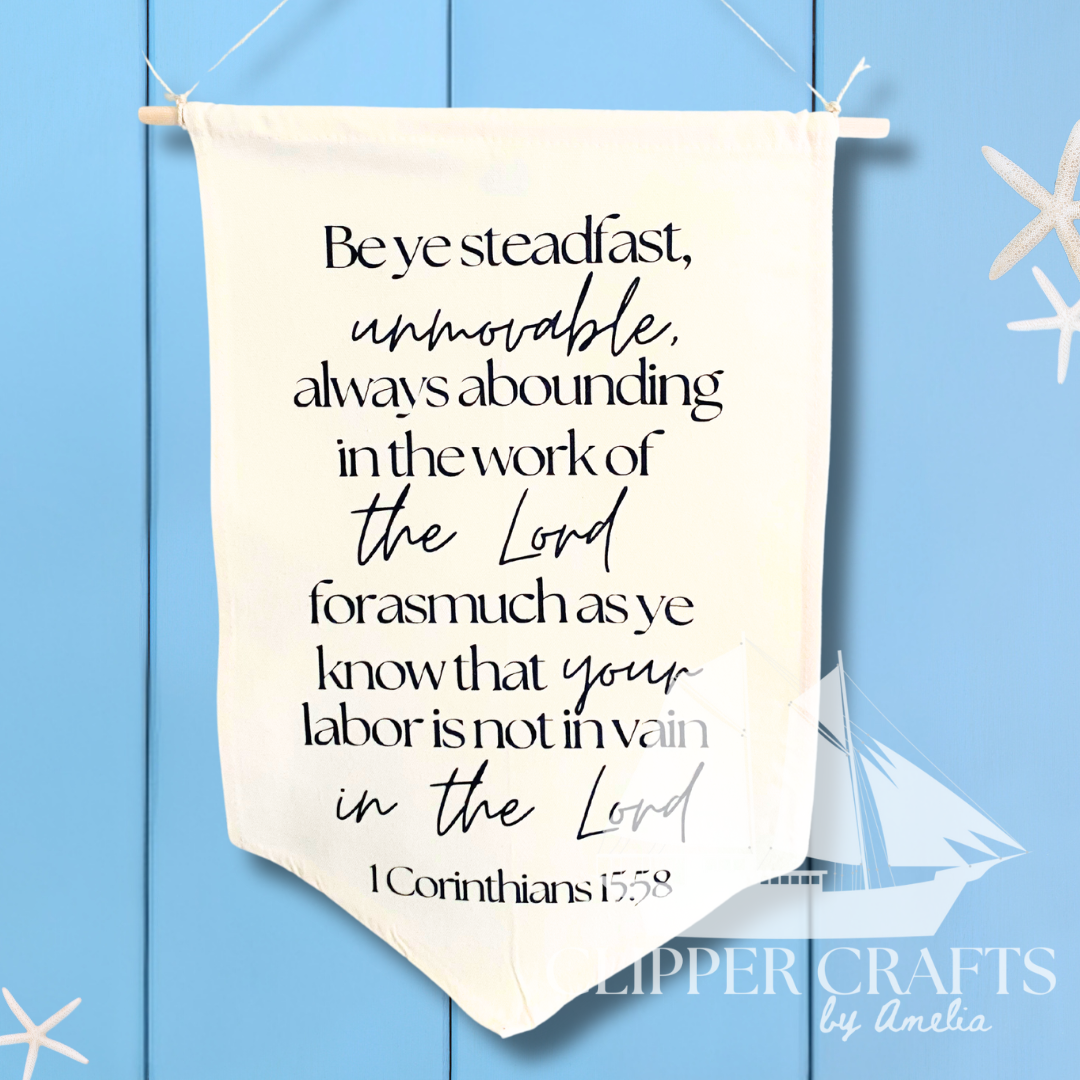 Be ye steadfast,
unmovable,
always abounding
in the work of
the Lord
forasmuch as ye
know that your
labor is not in vain
in the Lord
1 Corinthians 15:58
CLIPPER CRAFTS
by Amelia